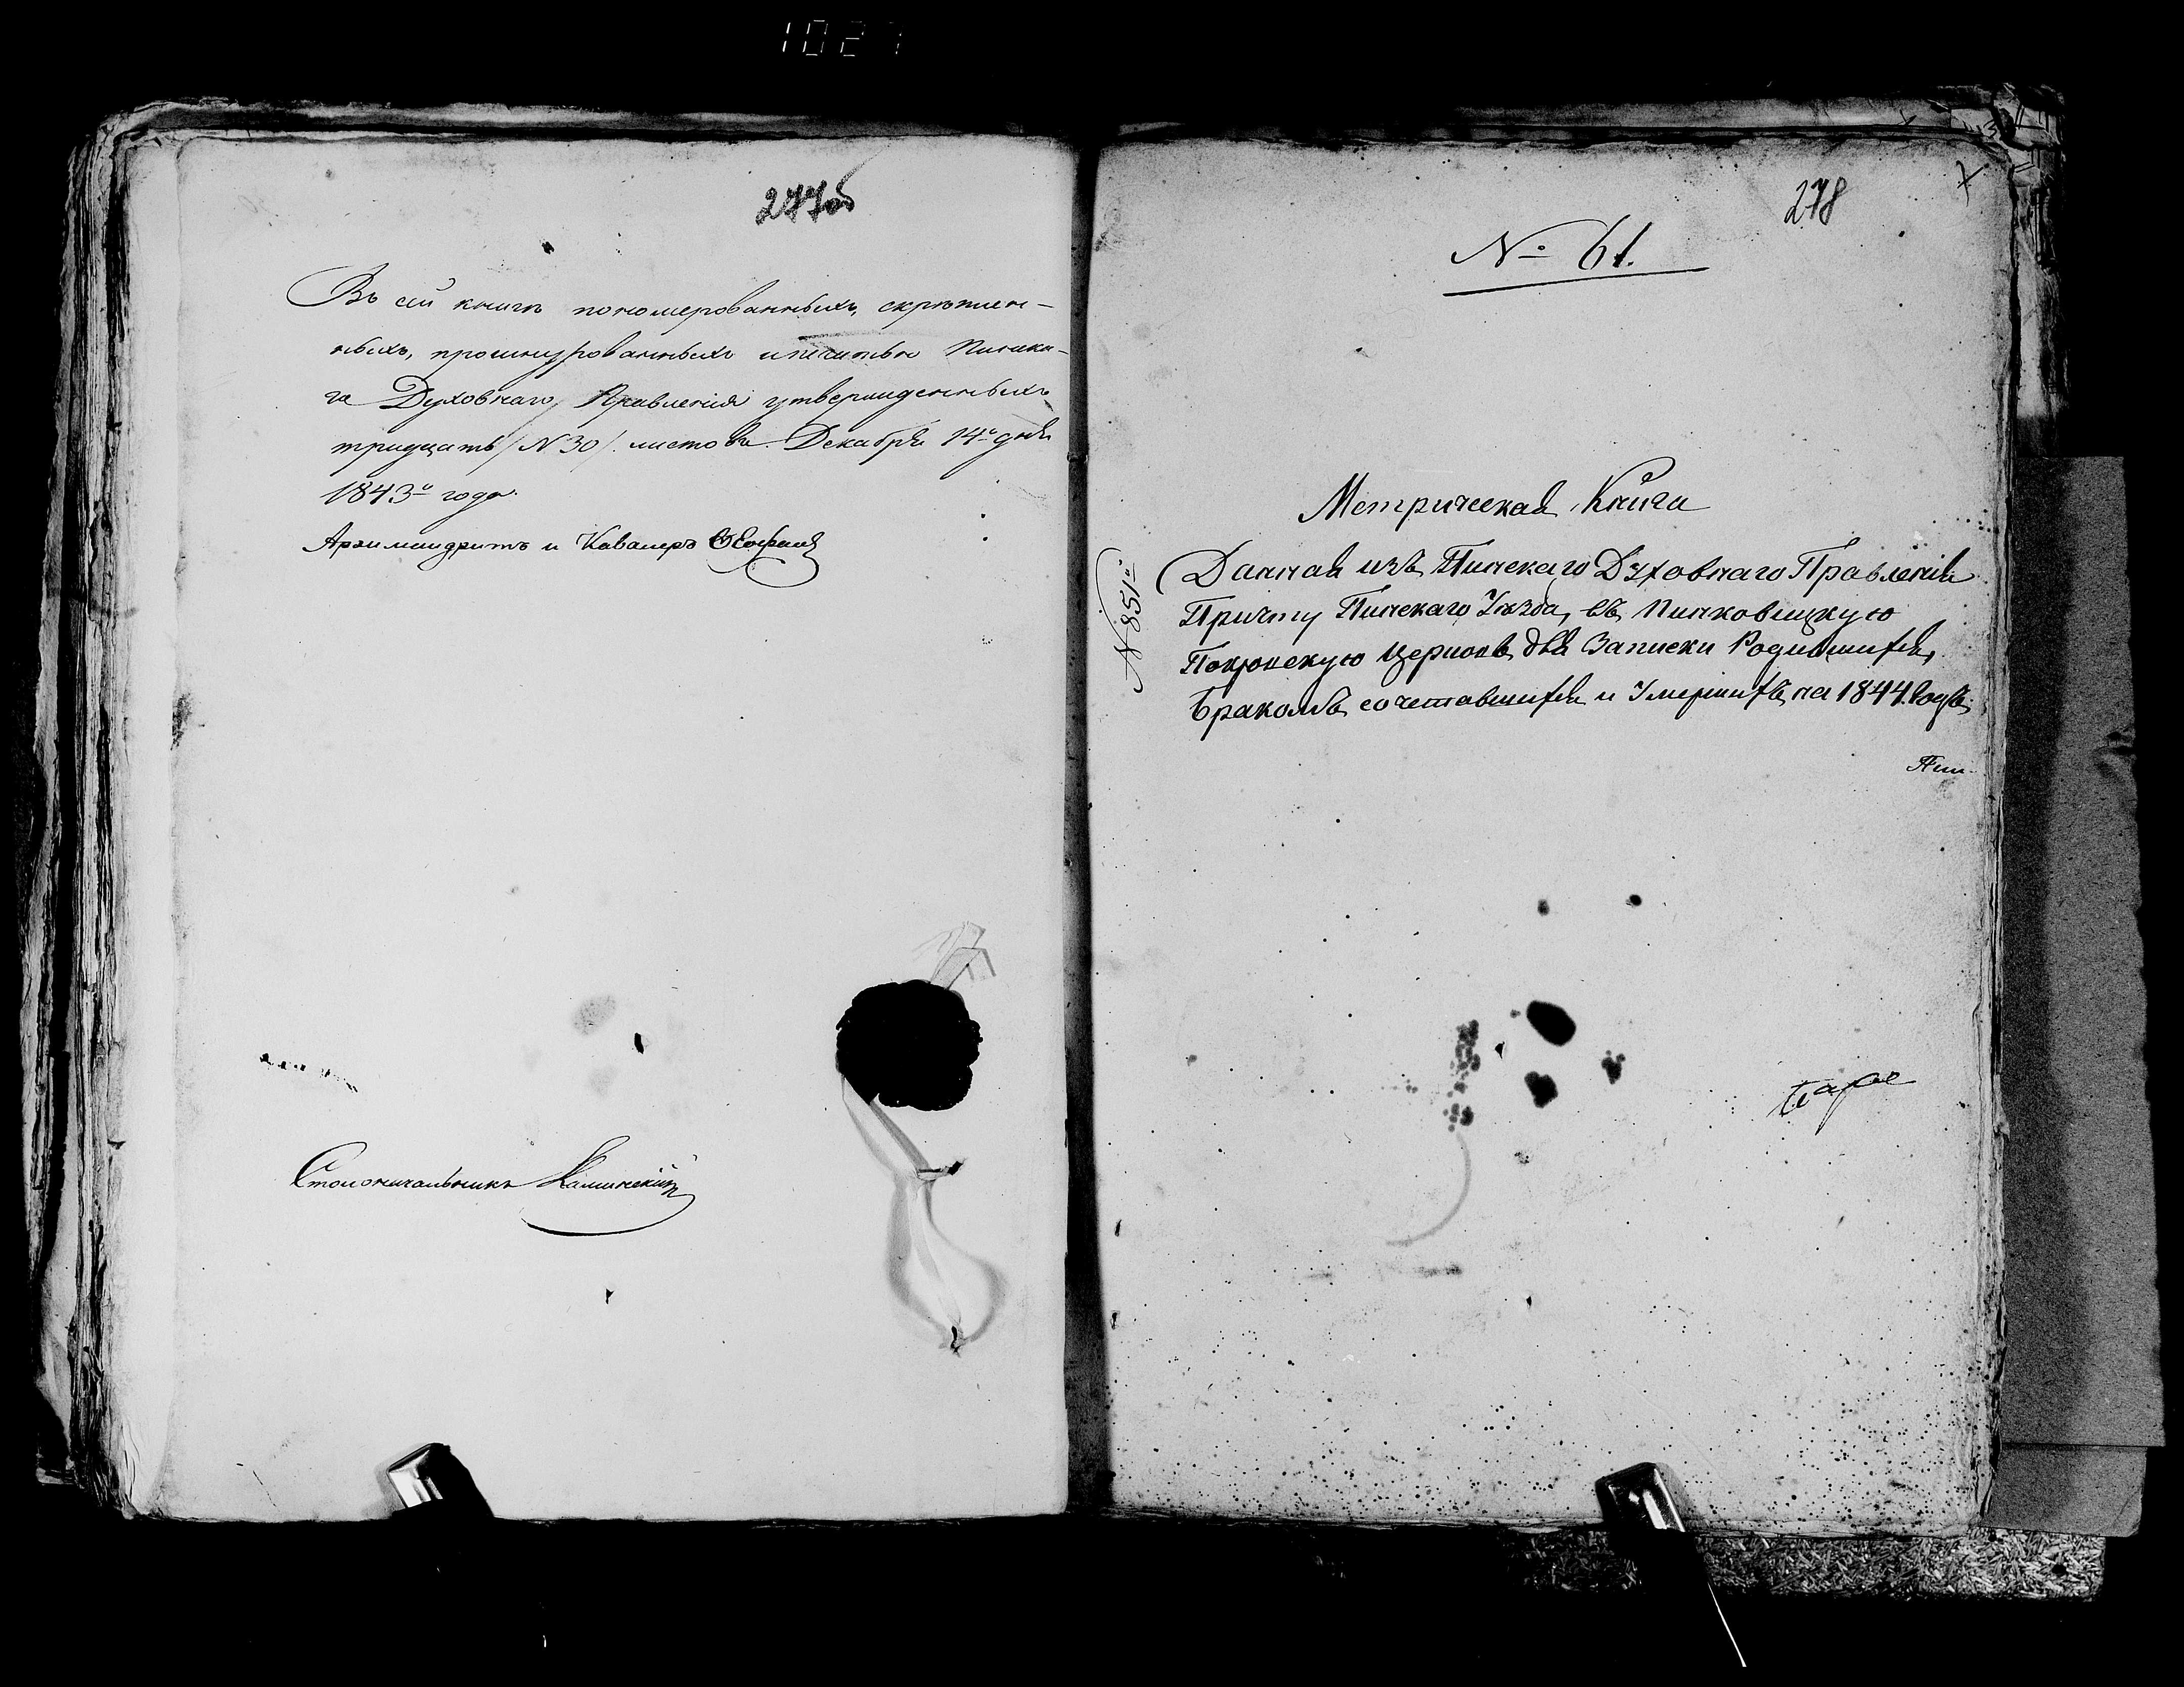 1027
277об
Въ сей книгѣ пономерованныхъ, скрѣплен-
ныхъ, прошнурованныхъ и печатью Пинска-
го Духовнаго Правленія утвержденныхъ
тридцать /N 30/ листовъ. Декабря 14го дня
1843го года.
Архимандритъ и Кавалеръ
Столоначальникъ Калинскій
278
№ 61.
Метрическая Книга
N 851
Данная изъ Пинскаго Духовнаго Правленія
Причту Пинскаго Уѣзда, въ Пинковицкую
Покровскую Церковь для Записки Родившихся,
Бракомъ сочетавшихся и Умершихъ на 1844. Годъ.
Пин-